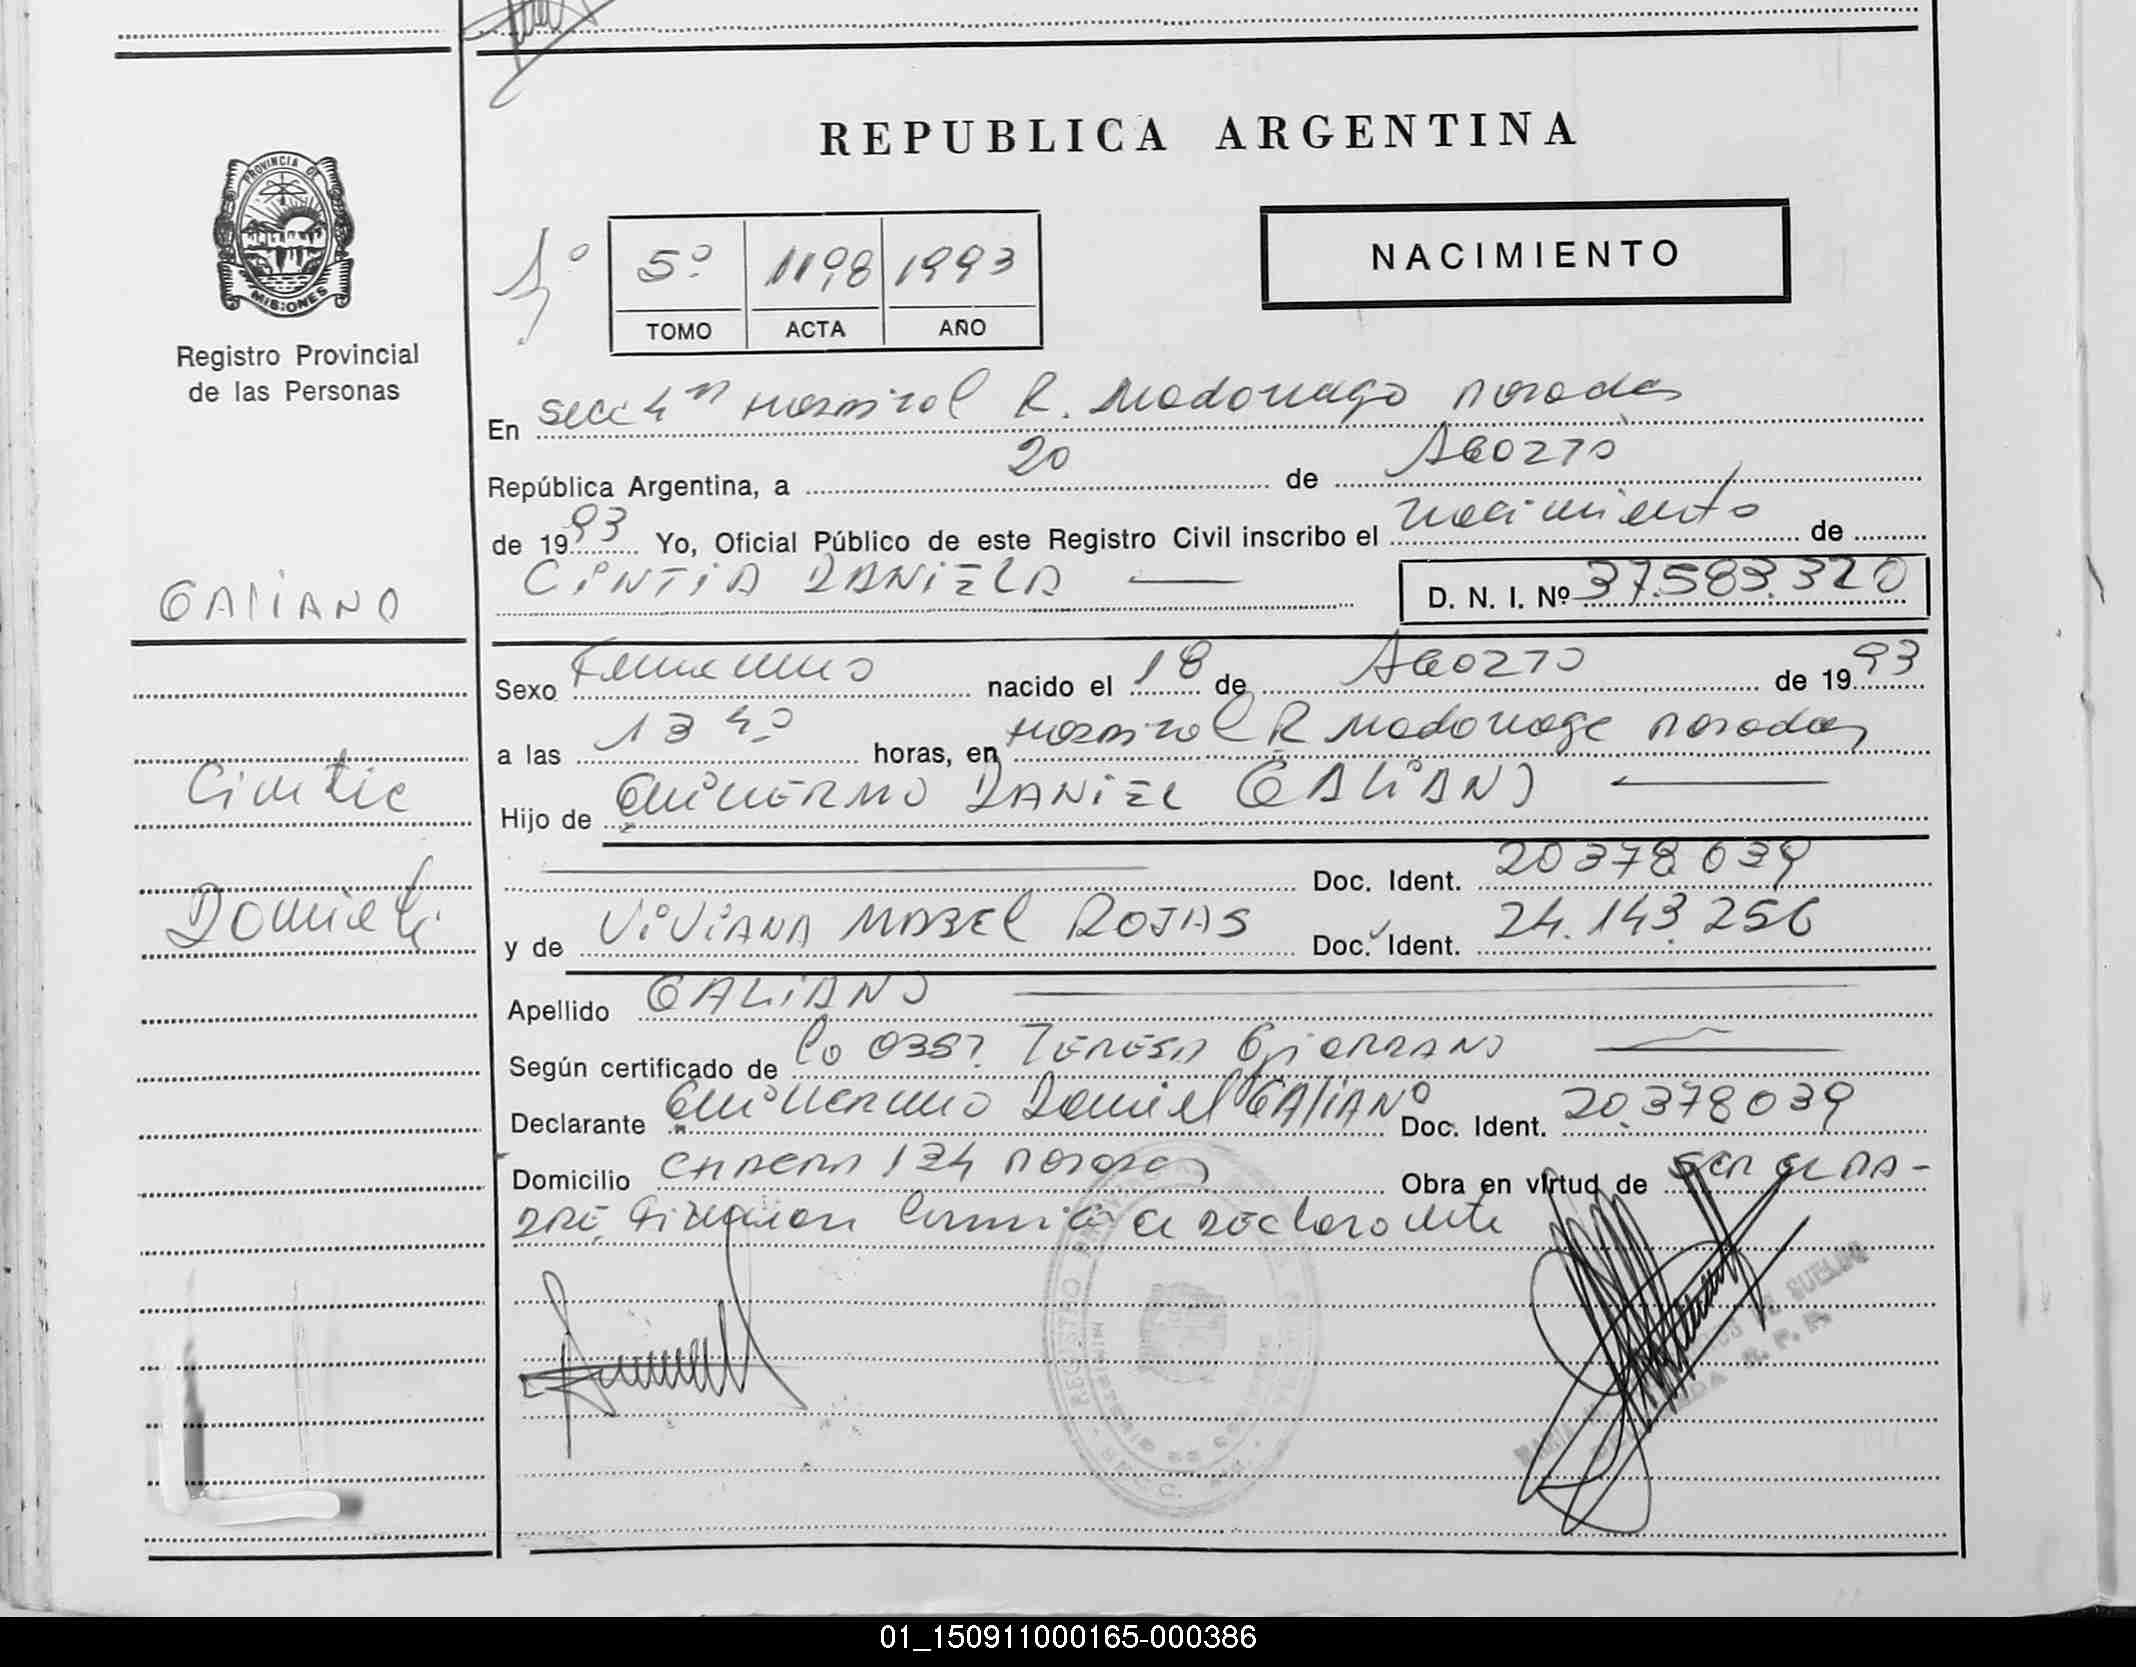 REPUBLICA ARGENTINA
PROVINCIA DE
MISIONES
Registro Provincial
de las Personas
1º 5º 1198 1993
TOMO ACTA AÑO
NACIMIENTO
En Secc 4ª Hospital R. Madariaga Posadas
República Argentina, a 20 de Agosto
de 1993 Yo, Oficial Público de este Registro Civil inscribo el nacimiento de
CINTIA DANIELA D. N. I. Nº 37.583.320
GALIANO
Sexo Femenino nacido el 18 de Agosto de 1993
a las 13 40 horas, en Hospital R Madariaga Posadas
Cintia
Hijo de GUILLERMO DANIEL GALIANO
Doc. Ident. 20378039
Daniela
y de VIVIANA MABEL ROJAS Doc. Ident. 24.143.256
Apellido GALIANO
Según certificado de la OBST TERESA
Declarante Guillermo Daniel GALIANO Doc. Ident. 20.378039
Domicilio 134 Posadas Obra en virtud de ser el PA-
DRE, el declarante
REGISTRO
01_150911000165-000386